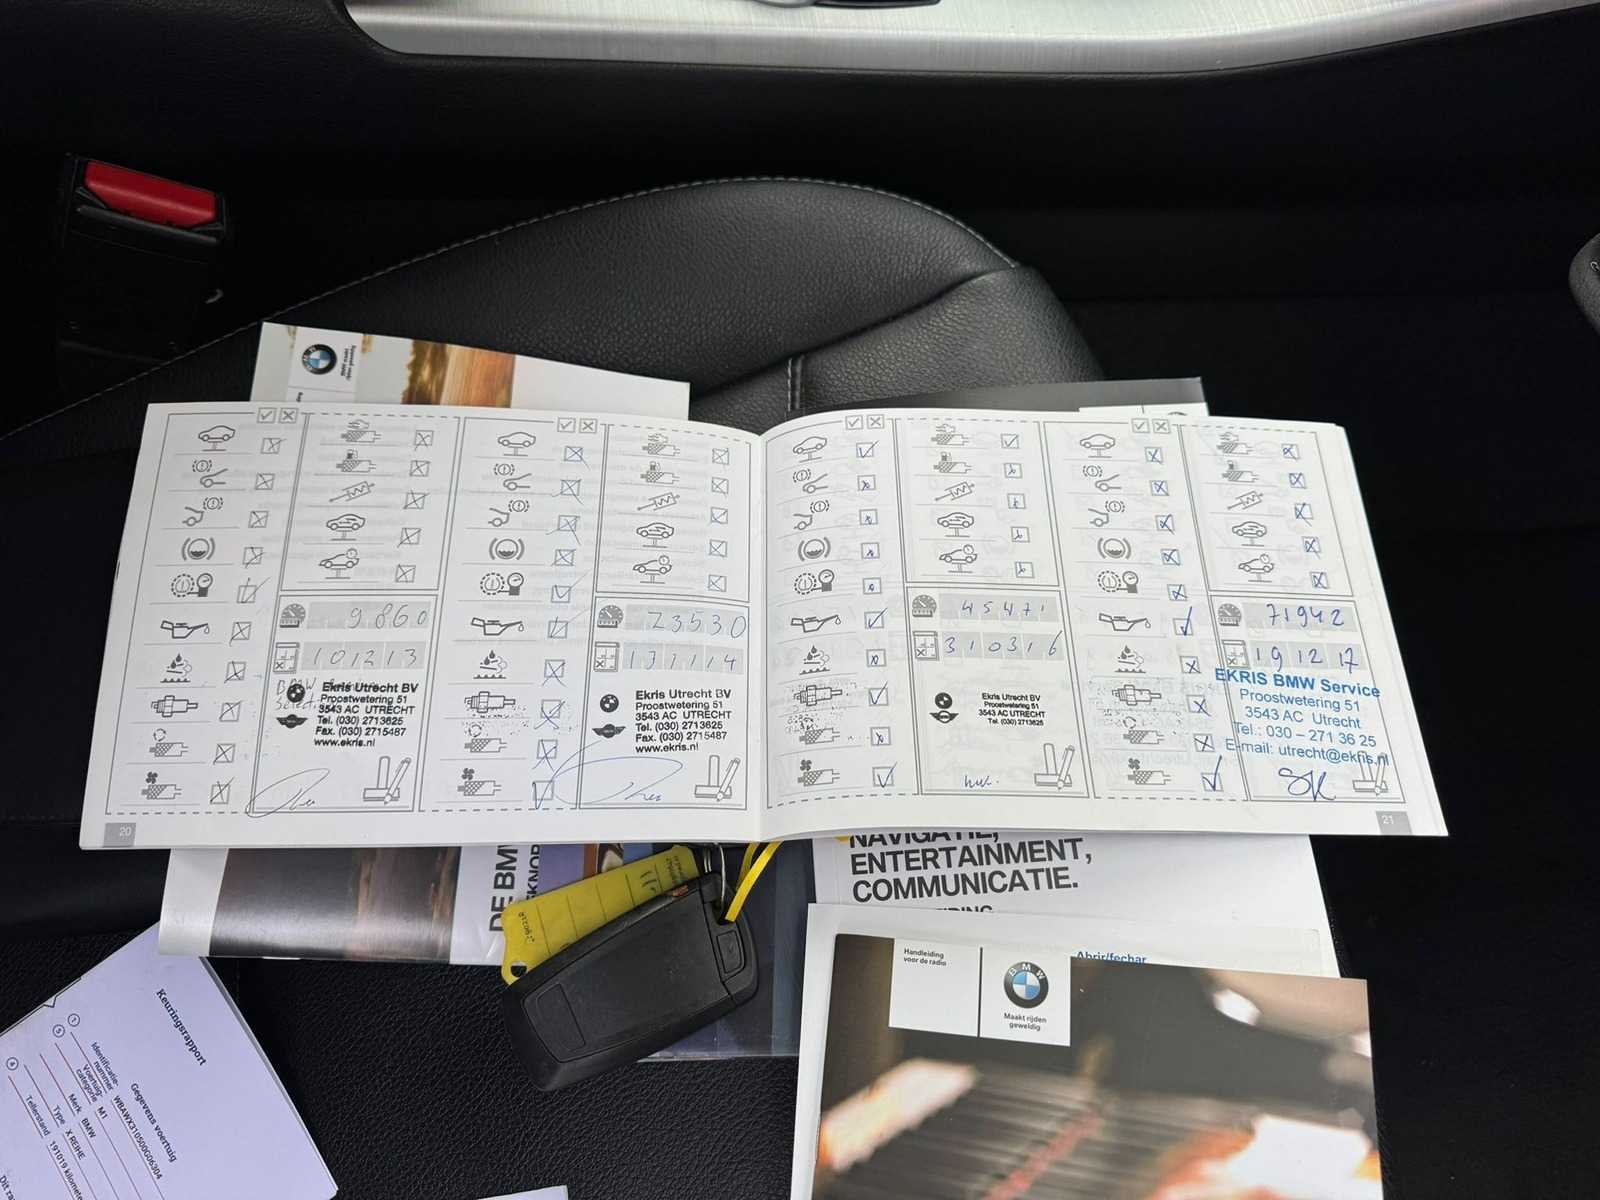 BMW maakt
rijden geweldig
9860
101213
BMW
Select
Ekris Utrecht BV
Proostwetering 51
3543 AC UTRECHT
Tel. (030) 2713625
Fax. (030) 2715487
www.ekris.nl
20
23530
131114
Ekris Utrecht BV
Proostwetering 51
3543 AC UTRECHT
Tel. (030) 2713625
Fax. (030) 2715487
www.ekris.nl
45471
310316
Ekris Utrecht BV
Proostwetering 51
3543 AC UTRECHT
Tel. (030) 2713625
71942
191217
EKRIS BMW Service
Proostwetering 51
3543 AC Utrecht
Tel.: 030 – 271 36 25
E-mail: utrecht@ekris.nl
21
DE BMW
NAVIGATIE,
ENTERTAINMENT,
COMMUNICATIE.
Handleiding
voor de radio
BMW
Maakt rijden
geweldig
Abrir/fechar
Keuringsrapport
Gegevens voertuig
1 Identificatie-
nummer WBAWX31050G06304
5 Voertuig-
categorie M1
Merk BMW
Type X REIHE
4 Tellerstand 191019 kilometer